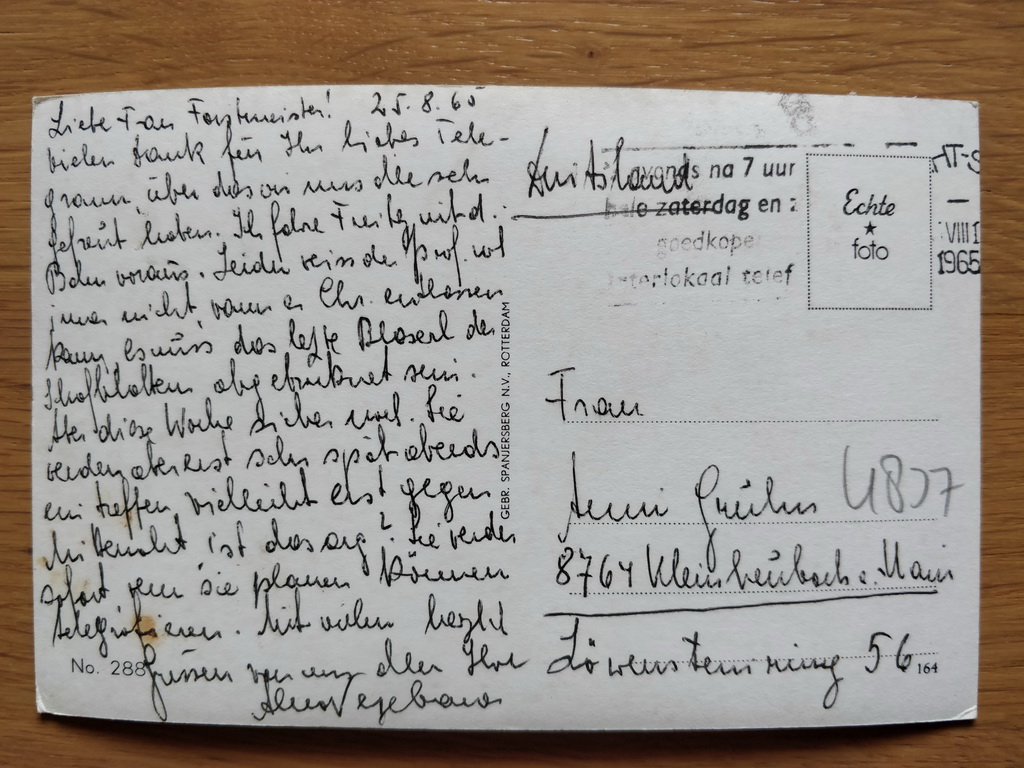 Liebe Frau Forstmeister! 25.8.65
vielen Dank für Ihr liebes Tele-
gramm, über das wir uns alle sehr
gefreut haben. Ich fahre Freitag mit d.
Bahn voraus. Leider weiss der Prof. wol
immer nicht, wann er Chr. entlassen
kann, es muss das letzte Blaserl der
Schafblattern abgetrocknet sein.
Aber diese Woche sicher noch. Sie
werden aber erst sehr spät abends
eintreffen, vielleicht erst gegen
Mitternacht, ist das arg? Sie werden
sofort wenn sie planen können
telegrafieren. Mit vielen herzl
Grüssen von uns allen Ihre
No. 288
Deutschland
avonds na 7 uur
hele zaterdag en z
goedkope
interlokaal telef
Echte
★
foto
AT-S
VIII
1965
GEBR. SPANJERSBERG N.V., ROTTERDAM
Frau
4837
8764 Kleinheubach a. Main
Löwensteinring 56
164